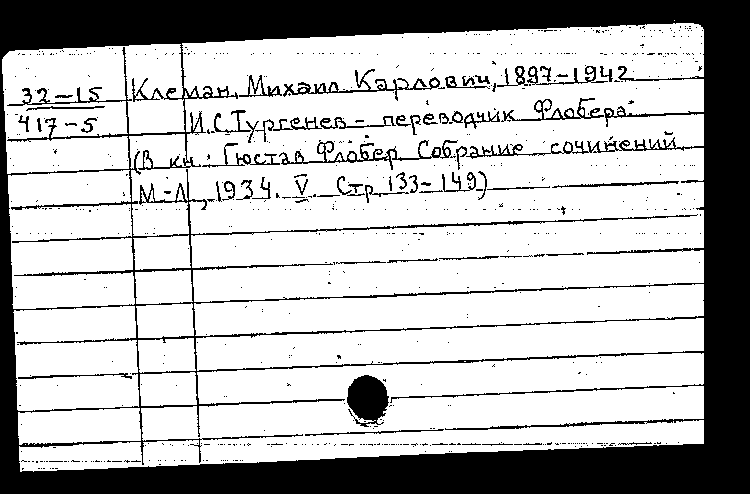 32–15 Клеман, Михаил Карлович, 1897–1942
417–5 И.С. Тургенев – переводчик Флобера.
(В кн.: Гюстав Флобер. Собрание сочинений.
М.-Л., 1934. V. Стр. 133–149)